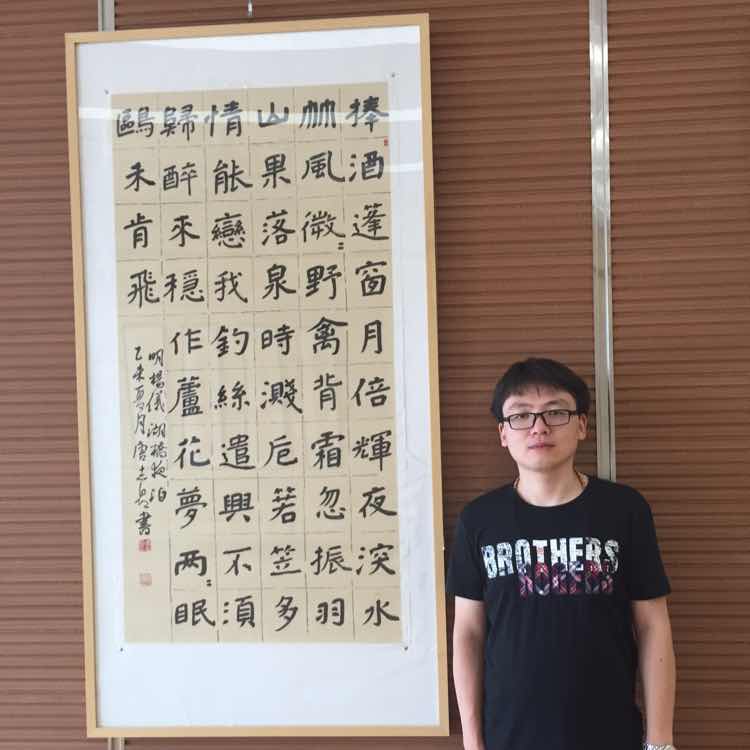 捧酒蓬窗月倍輝夜深水
竹風微〻野禽背霜忽振羽
山果落泉時濺卮箬笠多
情能戀我釣絲遣興不須
歸醉來穩作蘆花夢两〻眠
鷗未肯飛
明楊儀湖橋夜泊
乙未夏月唐志書
BROTHERS